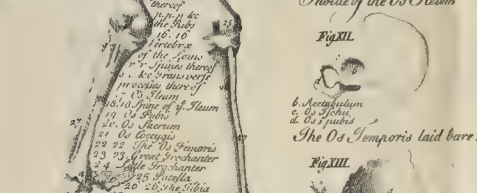 thereof
p.p.p &c
the Ribs
16. 16
Vertebræ
of the Loins
r r Spines thereof
s &c Transverse
processes thereof
Os Ileum
18.18 Spine of yͤ. Ileum
19 Os Pubis
20. Os Sacrum
21 Os Coccygis
22 22 The Os Femoris
23 23 Great Trochanter
24 Little Trochanter
25 Patella
26 26 The Tibia
25
27
Inside of the Os Ileum
Fig XII.
b. Acetabulum
c. Os Ischii
d. Os pubis
The Os Temporis laid bare.
Fig XIII.
b